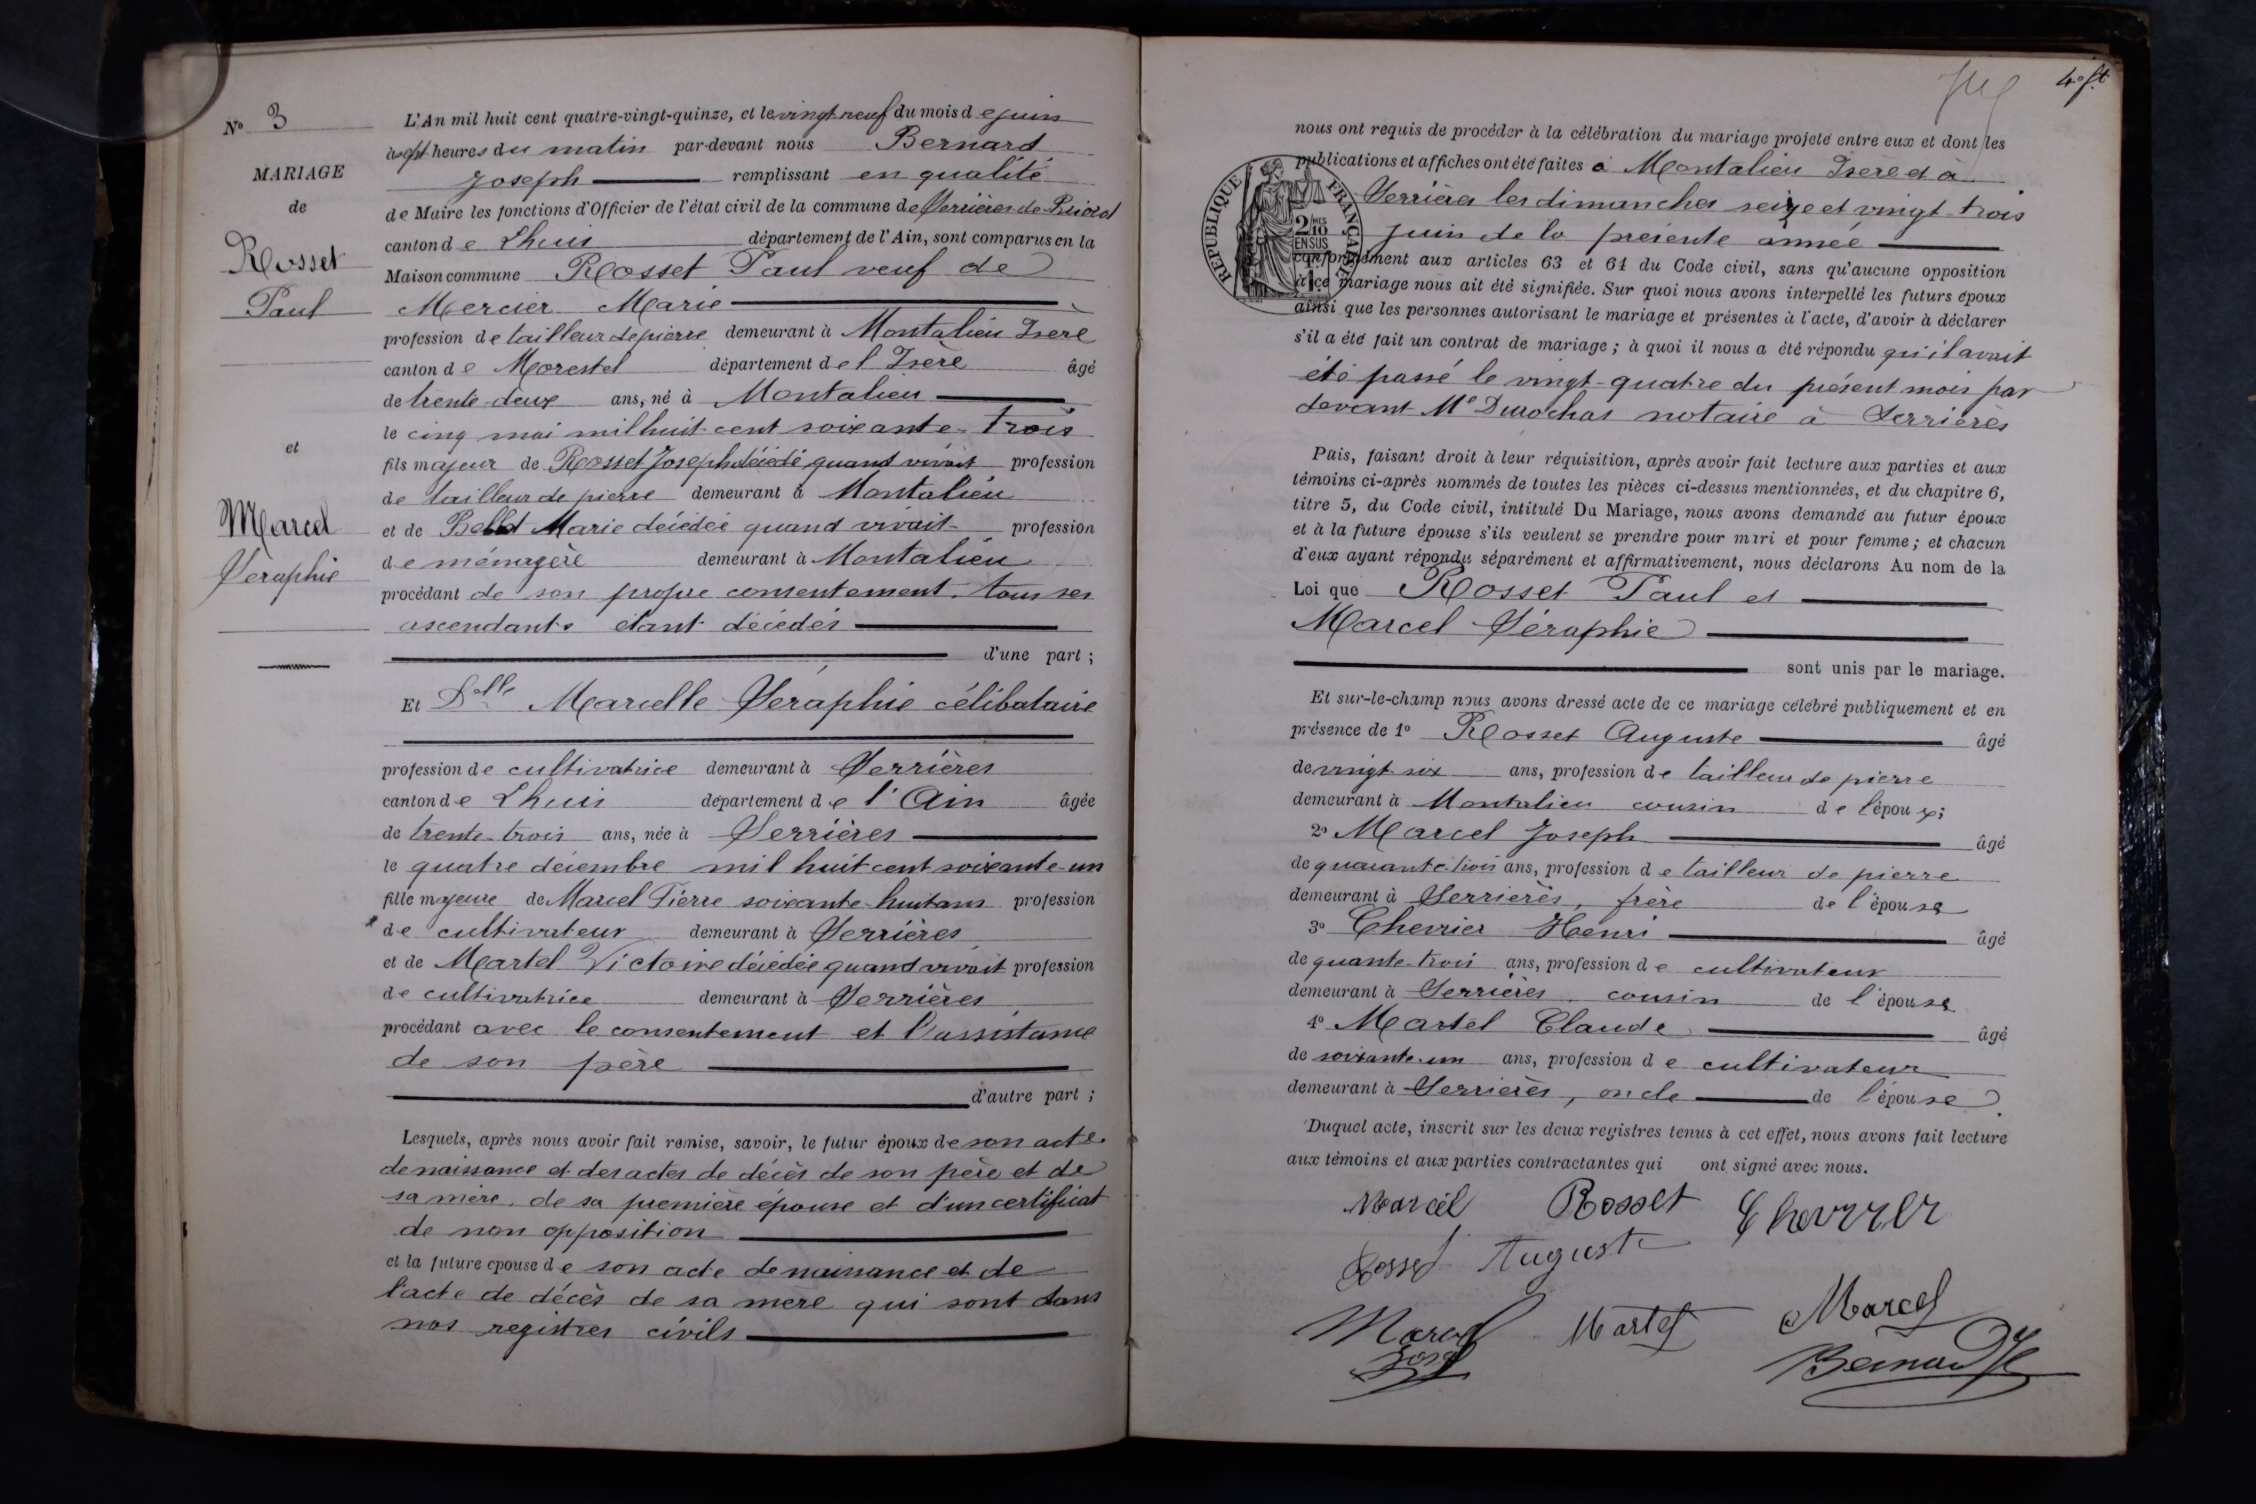 N° 3
MARIAGE
de
Rosset
Paul
et
Marcel
Séraphie
L'An mil huit cent quatre-vingt-quinze, et le vingt neuf du mois de juin
à sept heures du matin par-devant nous Bernard
Joseph remplissant en qualité
de Maire les fonctions d'Officier de l'état civil de la commune de Serrières de Briord
canton de Lhuis département de l'Ain, sont comparus en la
Maison commune Rosset Paul veuf de
Mercier Marie
profession de tailleur de pierre demeurant à Montalieu Isère
canton de Morestel département de l'Isère âgé
de trente deux ans, né à Montalieu
le cinq mai mil huit cent soixante-trois
fils majeur de Rosset Joseph décédé quand vivait profession
de tailleur de pierre demeurant à Montalieu
et de Marie décédée quand vivait profession
de ménagère demeurant à Montalieu
procédant de son propre consentement, tous ses
ascendants étant décédés
d'une part ;
Et Dlle Marcelle Séraphie célibataire
profession de cultivatrice demeurant à Serrières
canton de Lhuis département de l'Ain âgée
de trente-trois ans, née à Serrières
le quatre décembre mil huit cent soixante-un
fille majeure de Marcel Pierre soixante-huit ans profession
de cultivateur demeurant à Serrières
et de Martel Victoire décédée quand vivait profession
de cultivatrice demeurant à Serrières
procédant avec le consentement et l'assistance
de son père
d'autre part ;
Lesquels, après nous avoir fait remise, savoir, le futur époux de son acte
de naissance et des actes de décès de son père et de
sa mère, de sa première épouse et d'un certificat
de non opposition
et la future épouse de son acte de naissance et de
l'acte de décès de sa mère qui sont dans
nos registres civils
4e ft
nous ont requis de procéder à la célébration du mariage projeté entre eux et dont les
publications et affiches ont été faites à Montalieu Isère et à
Serrières les dimanches seize et vingt-trois
juin de la présente année
conformément aux articles 63 et 64 du Code civil, sans qu'aucune opposition
à ce mariage nous ait été signifiée. Sur quoi nous avons interpellé les futurs époux
ainsi que les personnes autorisant le mariage et présentes à l'acte, d'avoir à déclarer
s'il a été fait un contrat de mariage ; à quoi il nous a été répondu qu'il avait
été passé le vingt-quatre du présent mois par
devant Me Durochat notaire à Serrières
RÉPUBLIQUE FRANÇAISE
2/10 EN SUS
Puis, faisant droit à leur réquisition, après avoir fait lecture aux parties et aux
témoins ci-après nommés de toutes les pièces ci-dessus mentionnées, et du chapitre 6,
titre 5, du Code civil, intitulé Du Mariage, nous avons demandé au futur époux
et à la future épouse s'ils veulent se prendre pour mari et pour femme ; et chacun
d'eux ayant répondu séparément et affirmativement, nous déclarons Au nom de la
Loi que Rosset Paul et
Marcel Séraphie
sont unis par le mariage.
Et sur-le-champ nous avons dressé acte de ce mariage célébré publiquement et en
présence de 1° Rosset Auguste âgé
de vingt six ans, profession de tailleur de pierre
demeurant à Montalieu cousin de l'époux ;
2° Marcel Joseph âgé
de quarante-trois ans, profession de tailleur de pierre
demeurant à Serrières, frère de l'épouse
3° Chevrier Henri âgé
de quante-trois ans, profession de cultivateur
demeurant à Serrières, cousin de l'épouse
4° Martel Claude âgé
de soixante-un ans, profession de cultivateur
demeurant à Serrières, oncle de l'épouse
Duquel acte, inscrit sur les deux registres tenus à cet effet, nous avons fait lecture
aux témoins et aux parties contractantes qui ont signé avec nous.
Marcel Rosset Chevrier
Rosset Auguste
Marcel Martel Marcel
Bernard